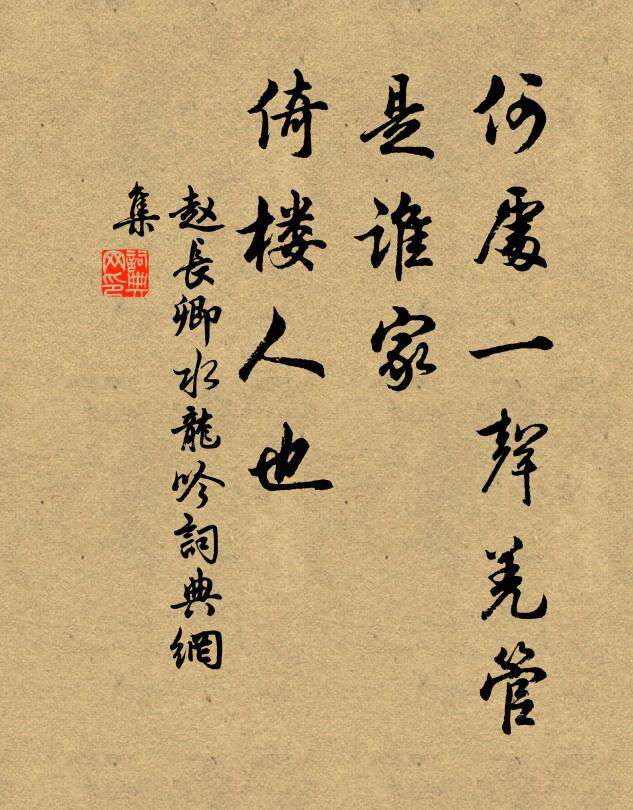 何處一聲羌管
是谁家
倚楼人也
赵長卿水龍吟詞典網
集
詞典
网印